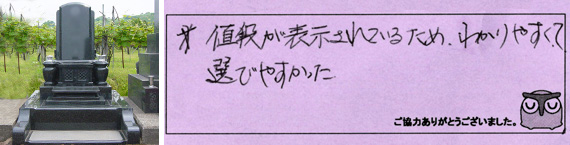 * 値段が表示されているため、わかりやすくて
選びやすかった
ご協力ありがとうございました。